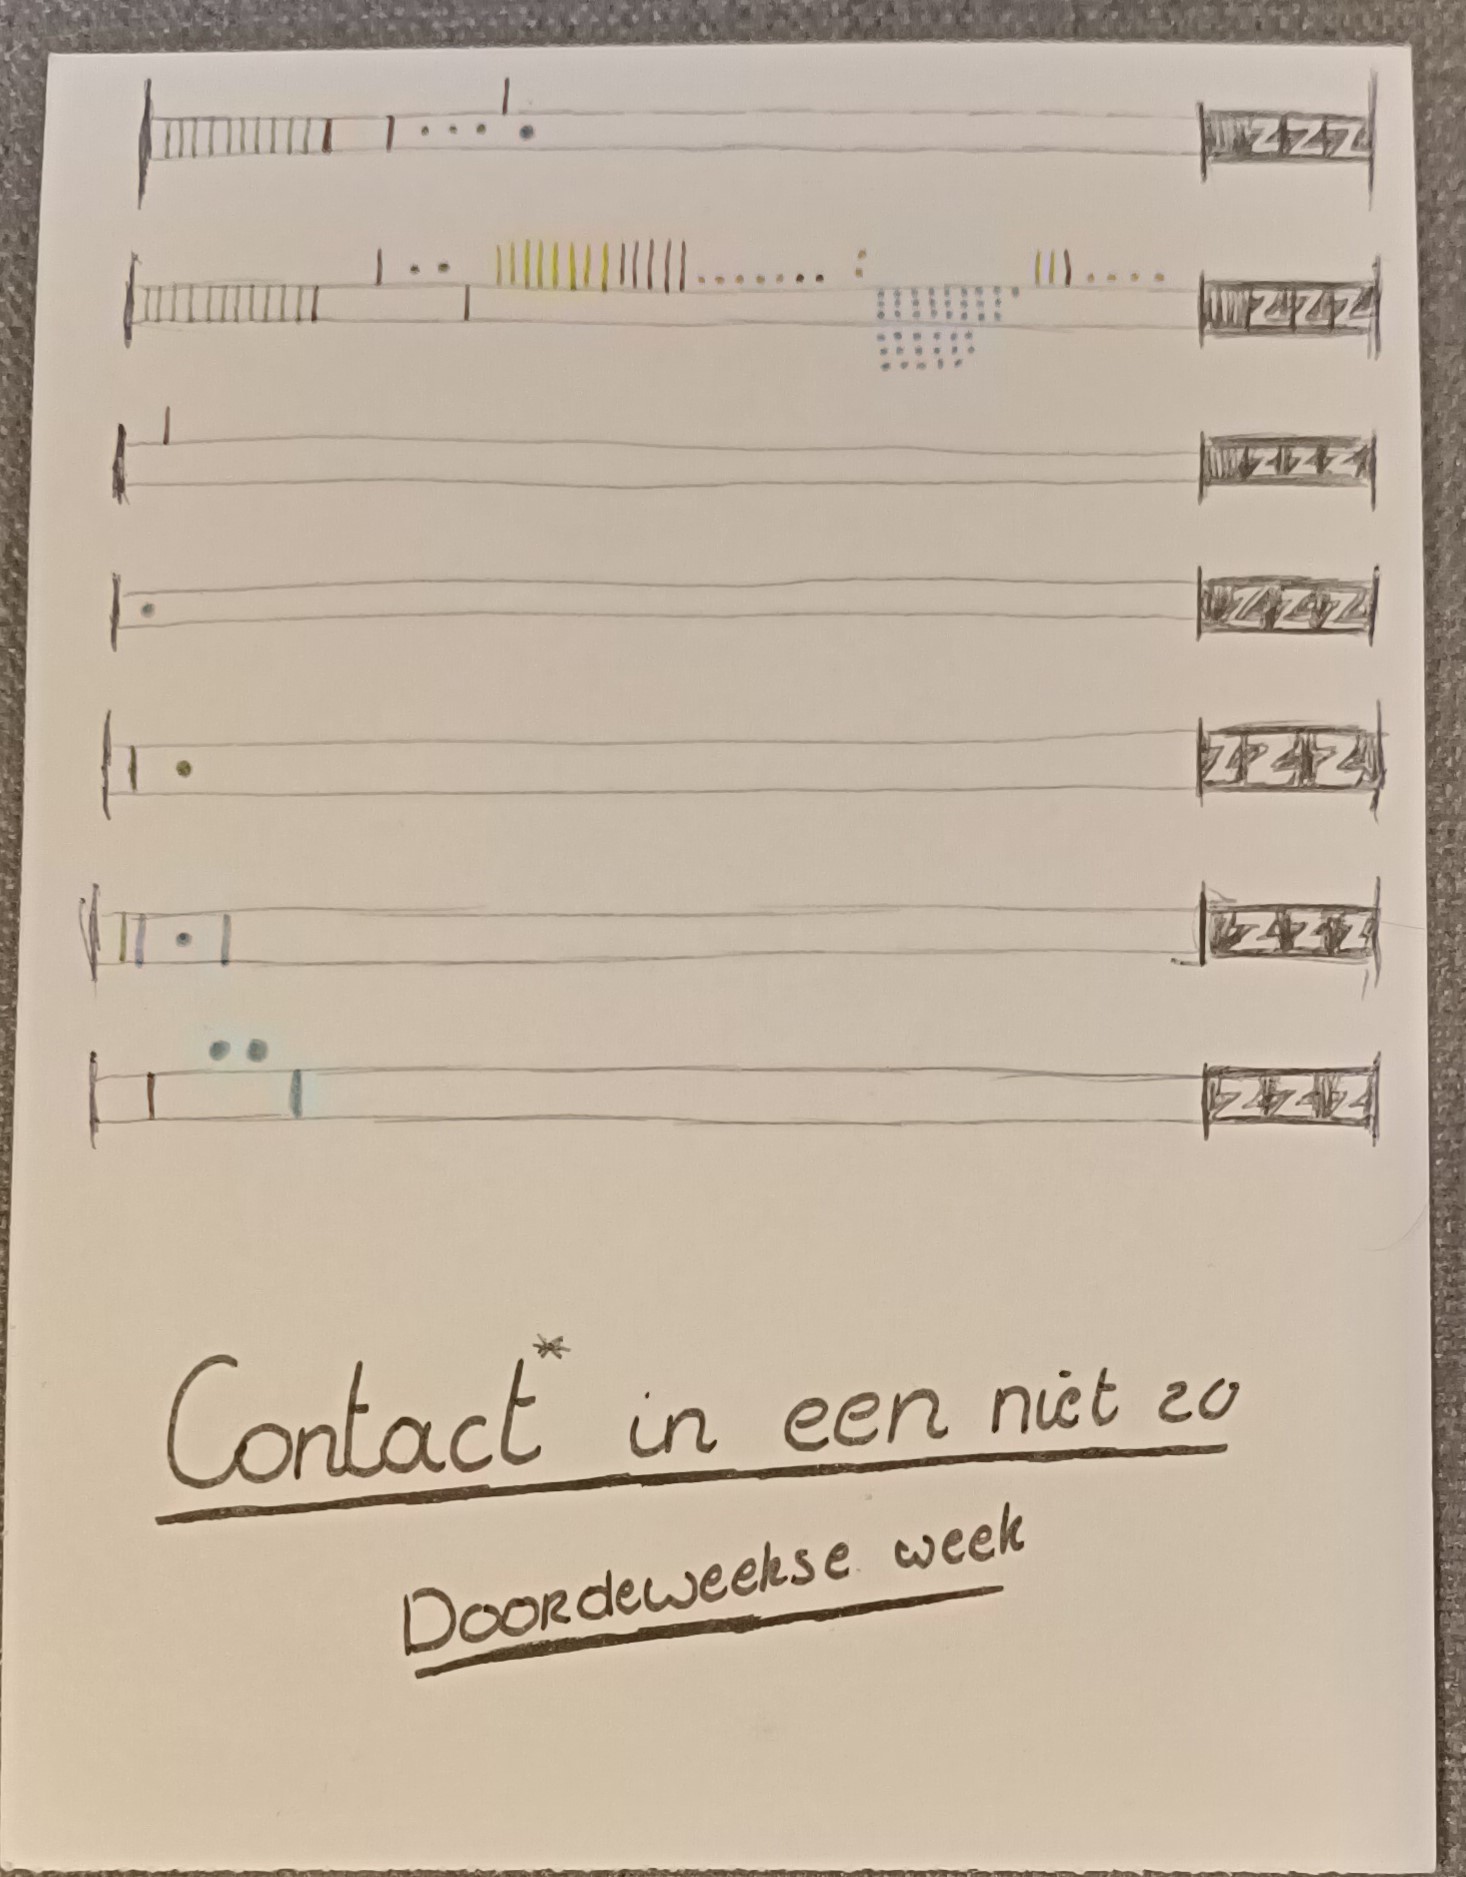 ZZZ
ZZZ
ZZZ
ZZZ
ZZZ
ZZZ
ZZZ
Contact* in een niet zo
Doordeweekse week